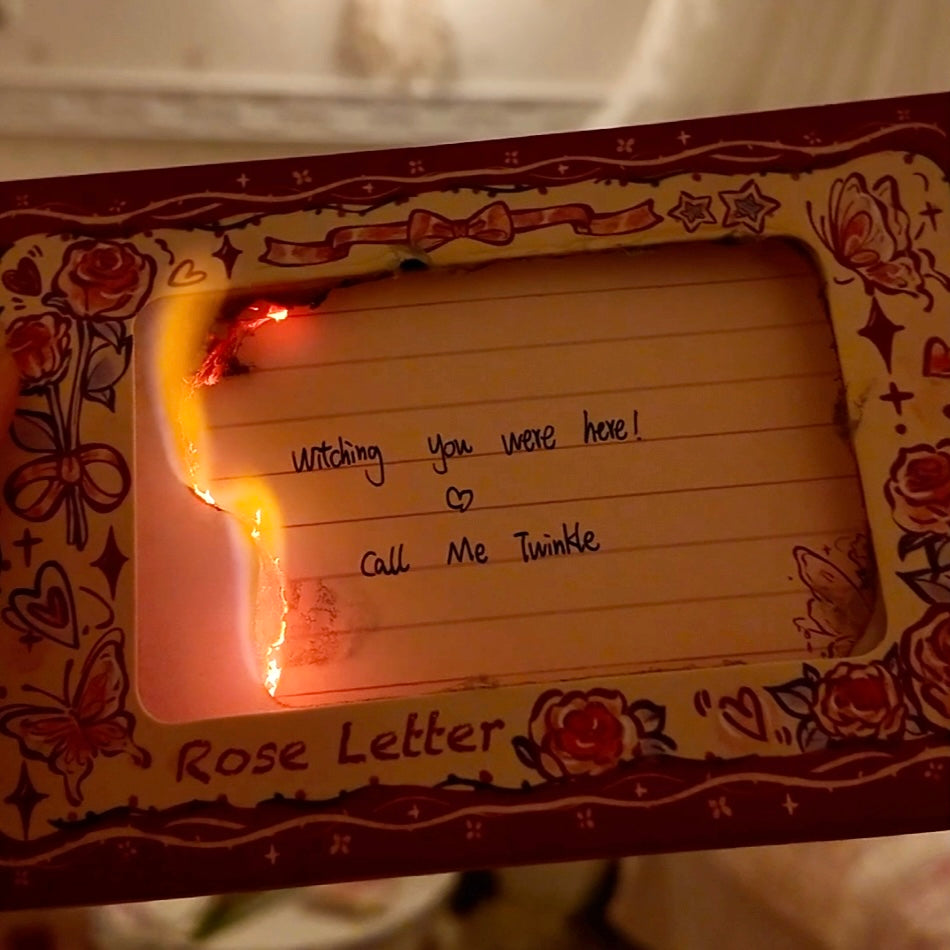 Witching you were here!
Call Me Twinkle
Rose Letter